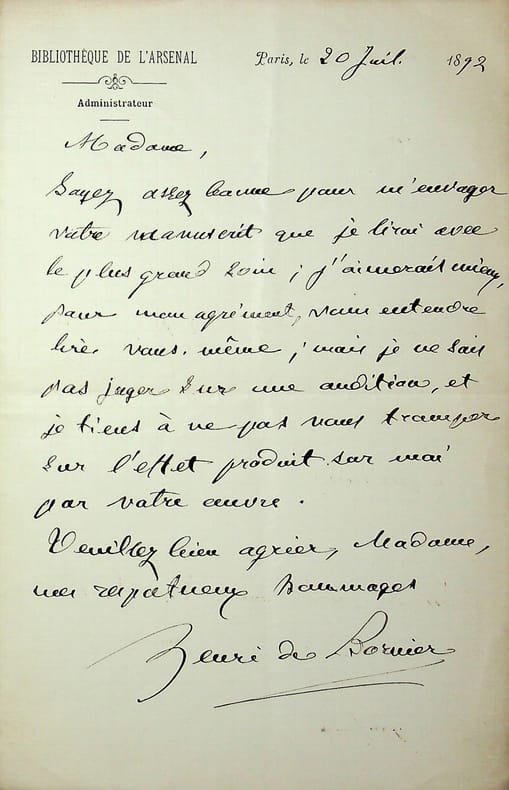 BIBLIOTHÈQUE DE L'ARSENAL
Administrateur
Paris, le 20 Juil. 1892
Madame,
Soyez assez bonne pour m'envoyer
votre manuscrit que je lirai avec
le plus grand soin ; j'aimerais mieux,
pour mon agrément, vous entendre
lire vous-même ; mais je ne sais
pas juger sur une audition, et
je tiens à ne pas vous tromper
sur l'effet produit sur moi
par votre œuvre.
Veuillez bien agréer, Madame,
mes respectueux hommages
Henri de Bornier